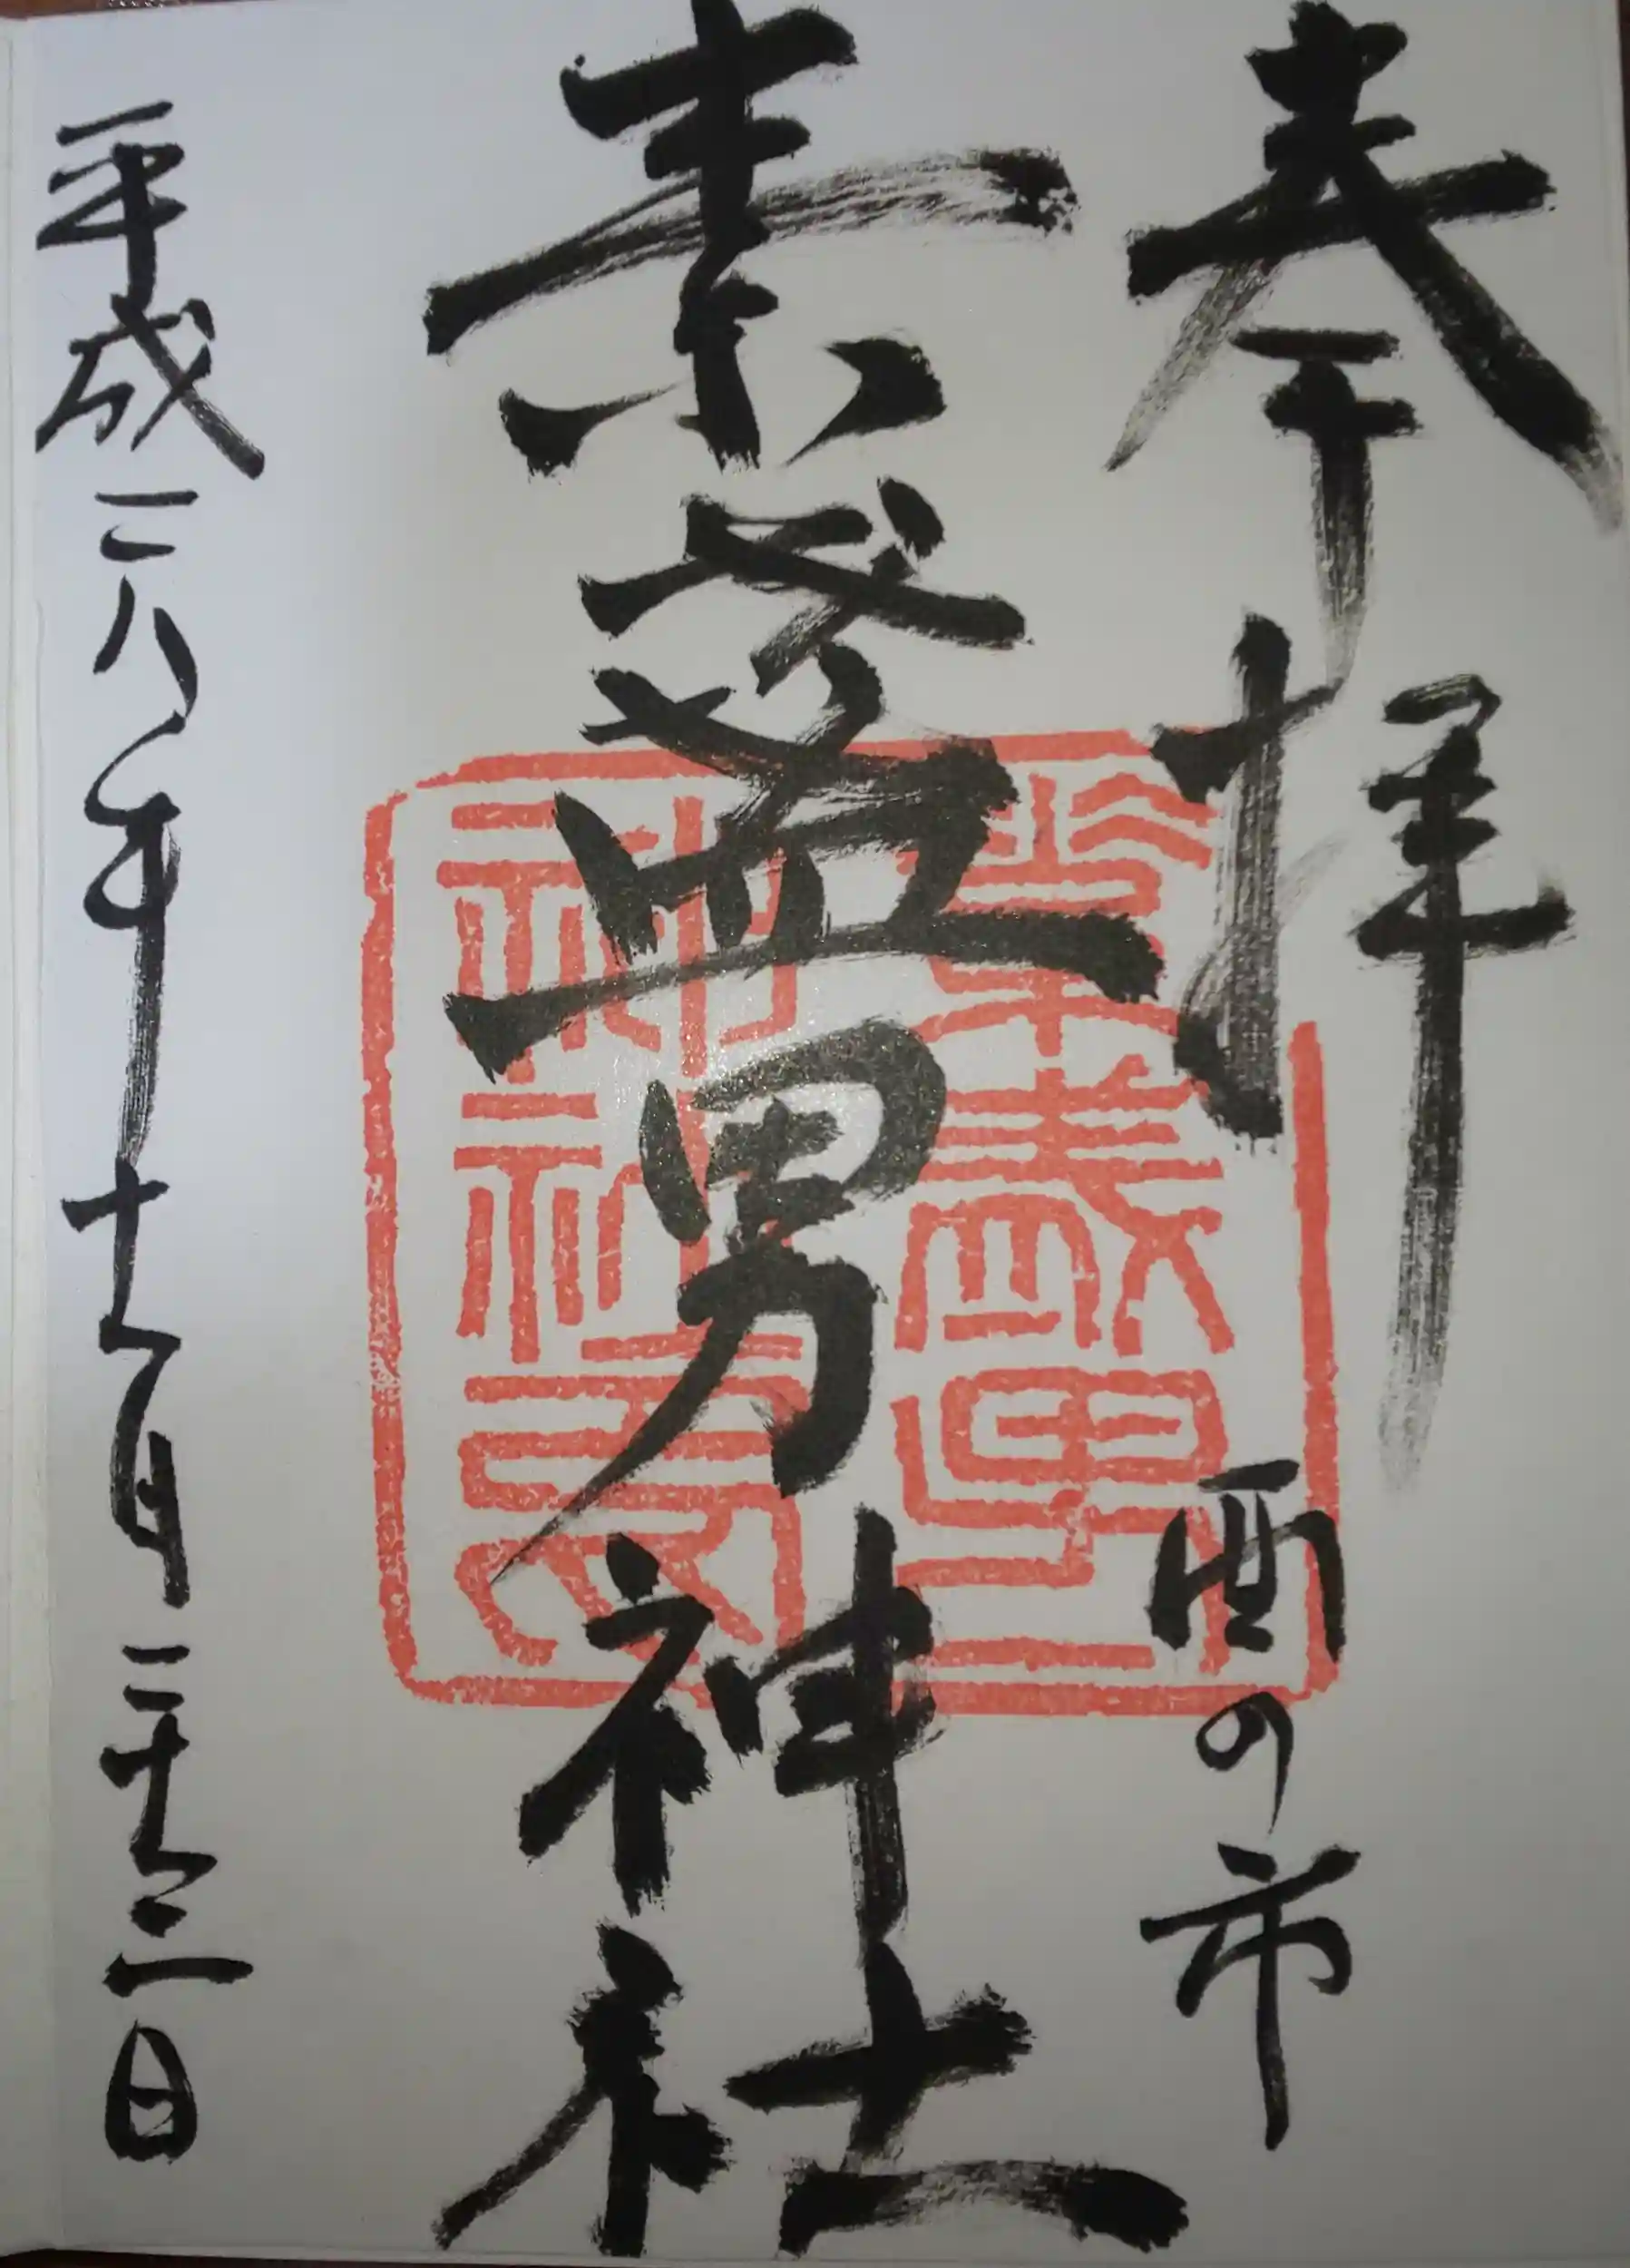 奉拝 酉の市
素盞雄神社
平成二八年十一月二十三日